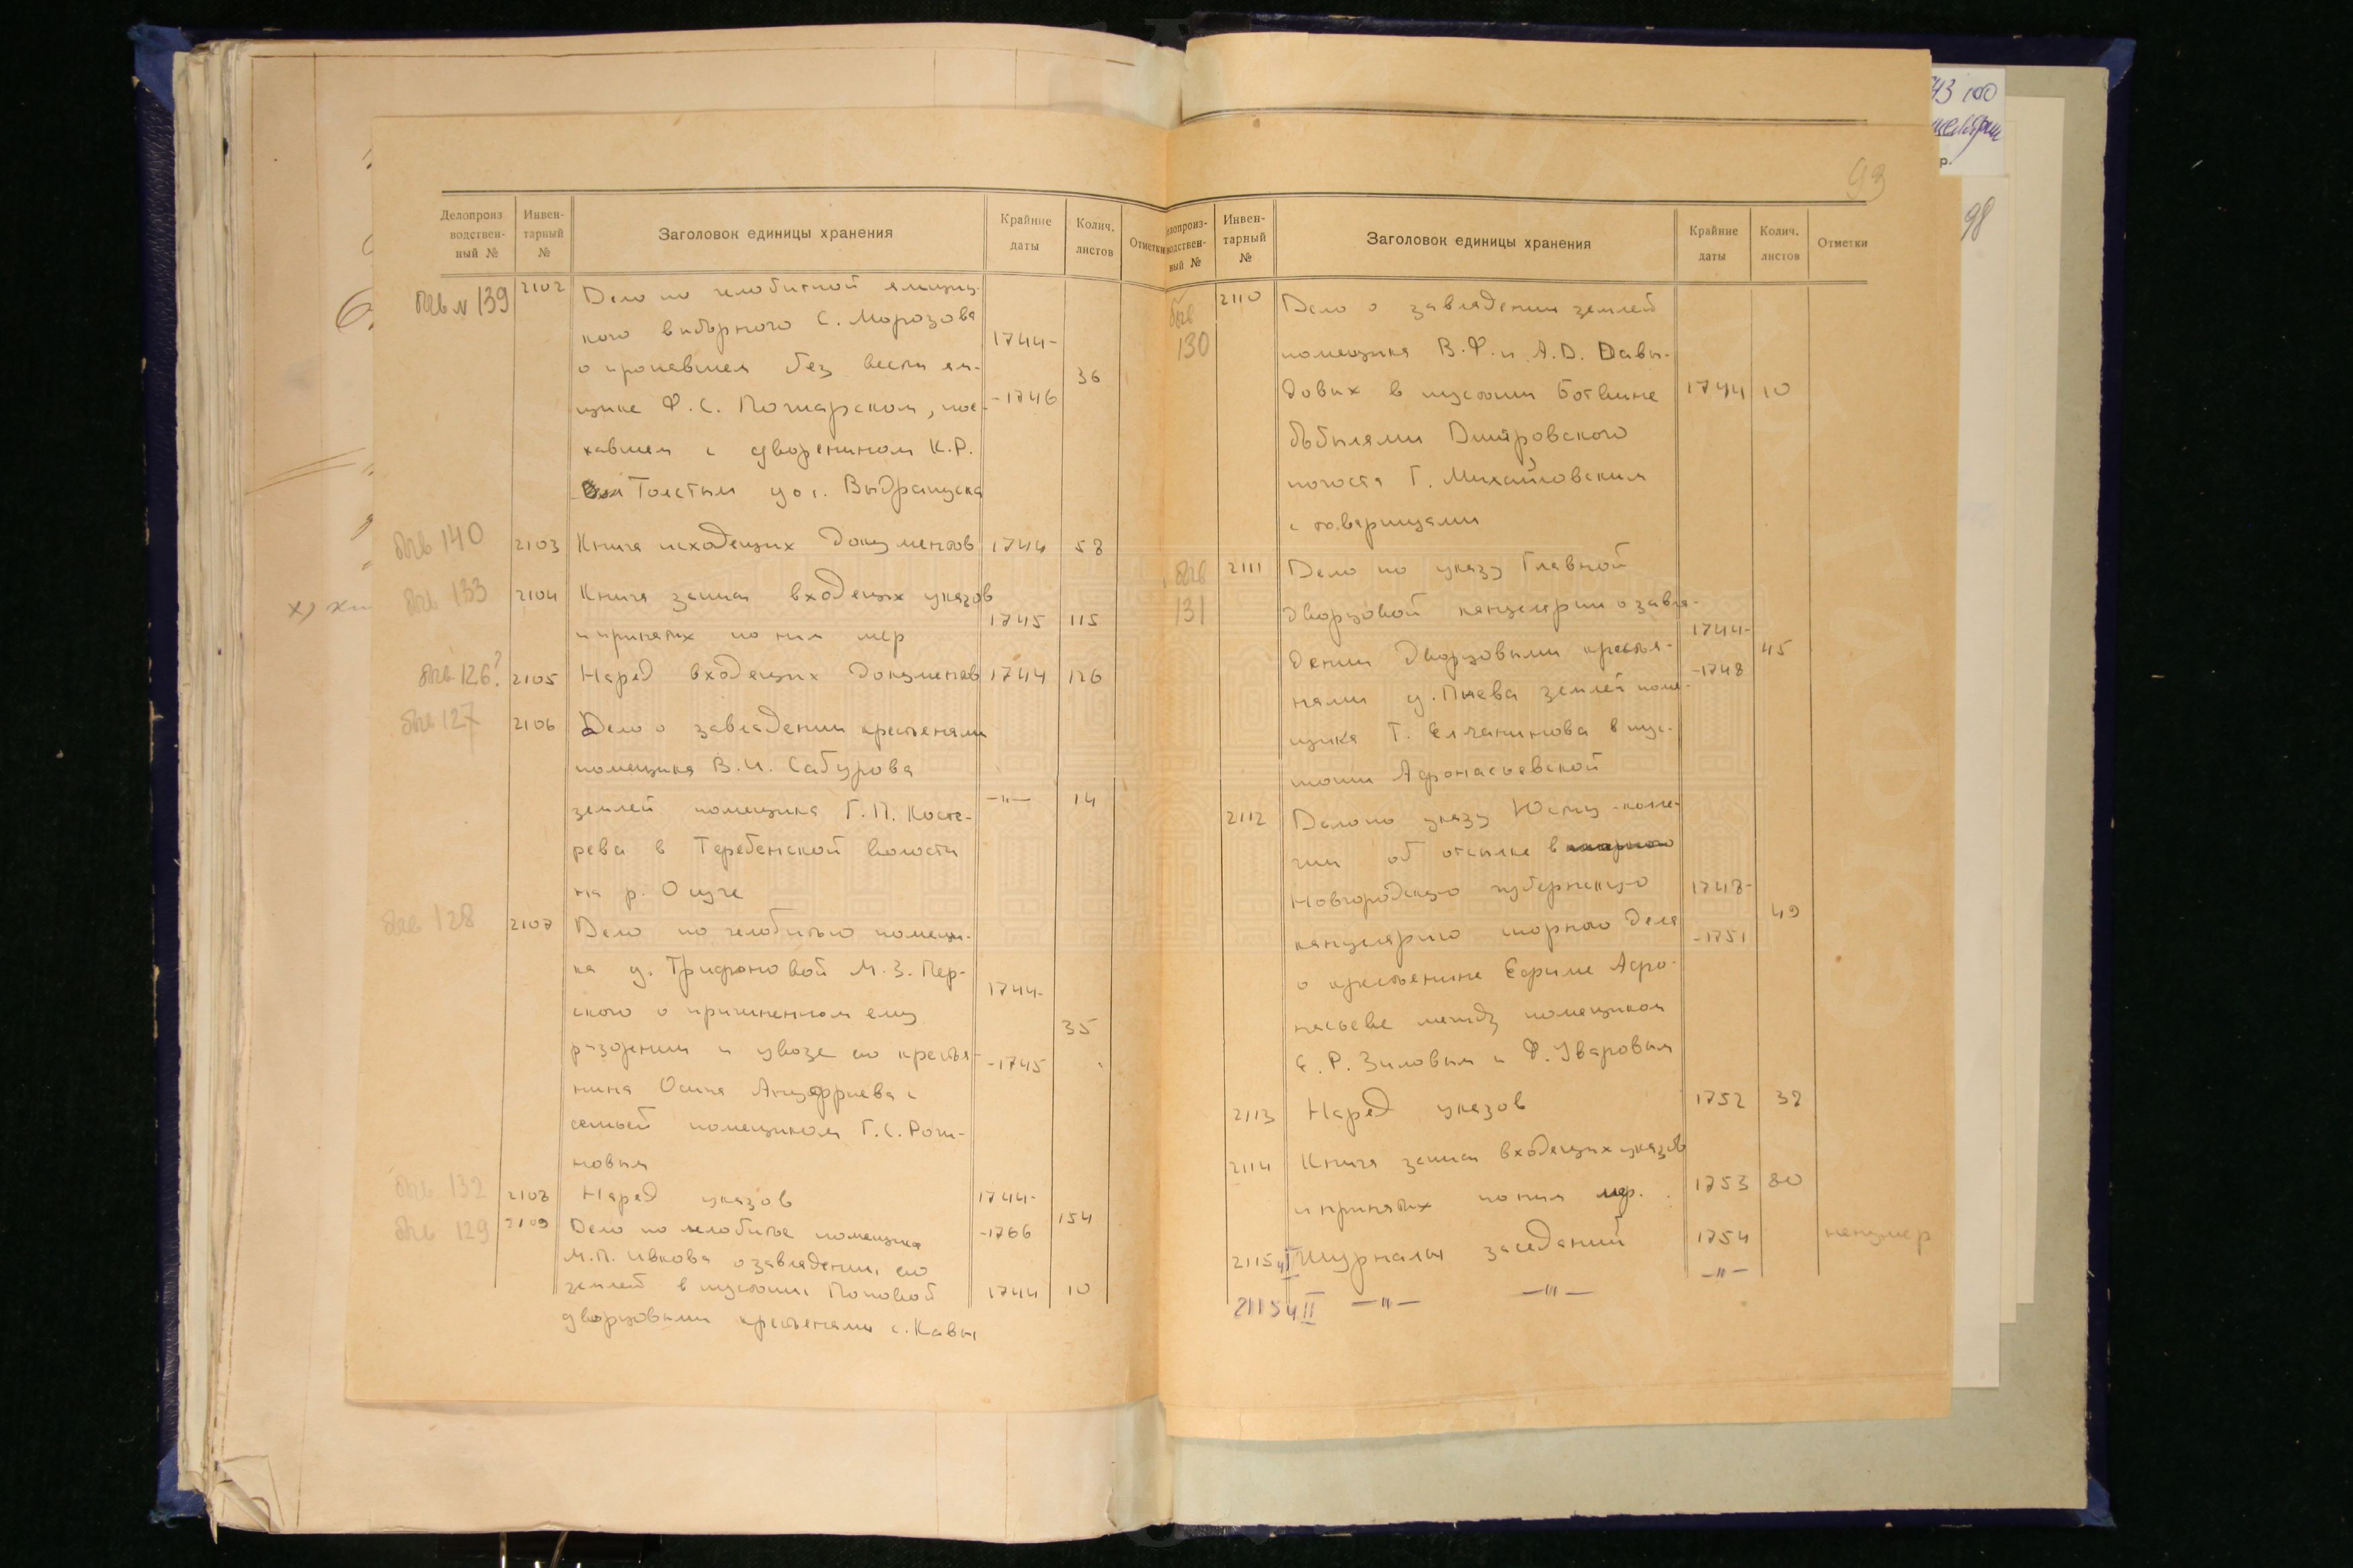 93
98
Делопроиз
водствен-
ный №
Инвен-
тарный
№
Заголовок единицы хранения
Крайние
даты
Колич.
листов
Отметки
бывш № 139
2102
Дело по челобитной ямщиц-
кого выборного С. Морозова
о пропавшем без вести ям-
щике Ф.С. Пожарском, пое-
хавшем с дворянином К.Р.
Толстым до с. Выдропуска
1744-
-1746
36
140
2103
Книга исходящих документов
1744
58
133
2104
Книга записи входящих указов
и принятых по ним мер
1745
115
126?
2105
Наряд входящих документов
1744
126
127
2106
Дело о завладении крестьянами
помещика В.И. Сабурова
землей помещика Г.П. Косте-
рева в Теребенской волости
на р. Осуге
—"—
14
128
2107
Дело по челобитью помещи-
ка д. Трифоновой М.З. Пер-
ского о причиненном ему
разорении и увозе его крестья-
нина Осипа с
семьей помещиком Г.С. Рож-
новым
1744-
-1745
35
132
2108
Наряд указов
1744-
-1766
154
129
2109
Дело по челобитье помещика
М.П. Ивкова о завладении его
землей в пустоши Поповой
дворцовыми крестьянами с. Кавы
1744
10
делопроиз-
водствен-
ный №
Инвен-
тарный
№
Заголовок единицы хранения
Крайние
даты
Колич.
листов
Отметки
130
2110
Дело о завладении землей
помещика В.Ф. и А.D. Давы-
довых в пустоши Ботвине
бобылями Дмитровского
погоста Г. Михайловским
с товарищами
1744
10
131
2111
Дело по указу Главной
дворцовой канцелярии о завла-
дении дворцовыми крестья-
нами д. Пнева землей поме-
щика Т. Елчанинова в пус-
тоши Афонасьевской
1744-
-1748
45
2112
Дело по указу Юстиц-колле-
гии об отсылке в
Новгородскую губернскую
канцелярию спорного дела
о крестьянине Ефиме Афо-
насьеве между помещиком
Е.Р. Зиловым и Ф. Уваровым
1748-
-1751
49
2113
Наряд указов
1752
38
2114
Книга записи входящих указов
и принятых по ним мер.
1753
80
2115 ч I
Журналы заседаний
1754
ненумер
2115 ч II
—"—
—"—
—"—